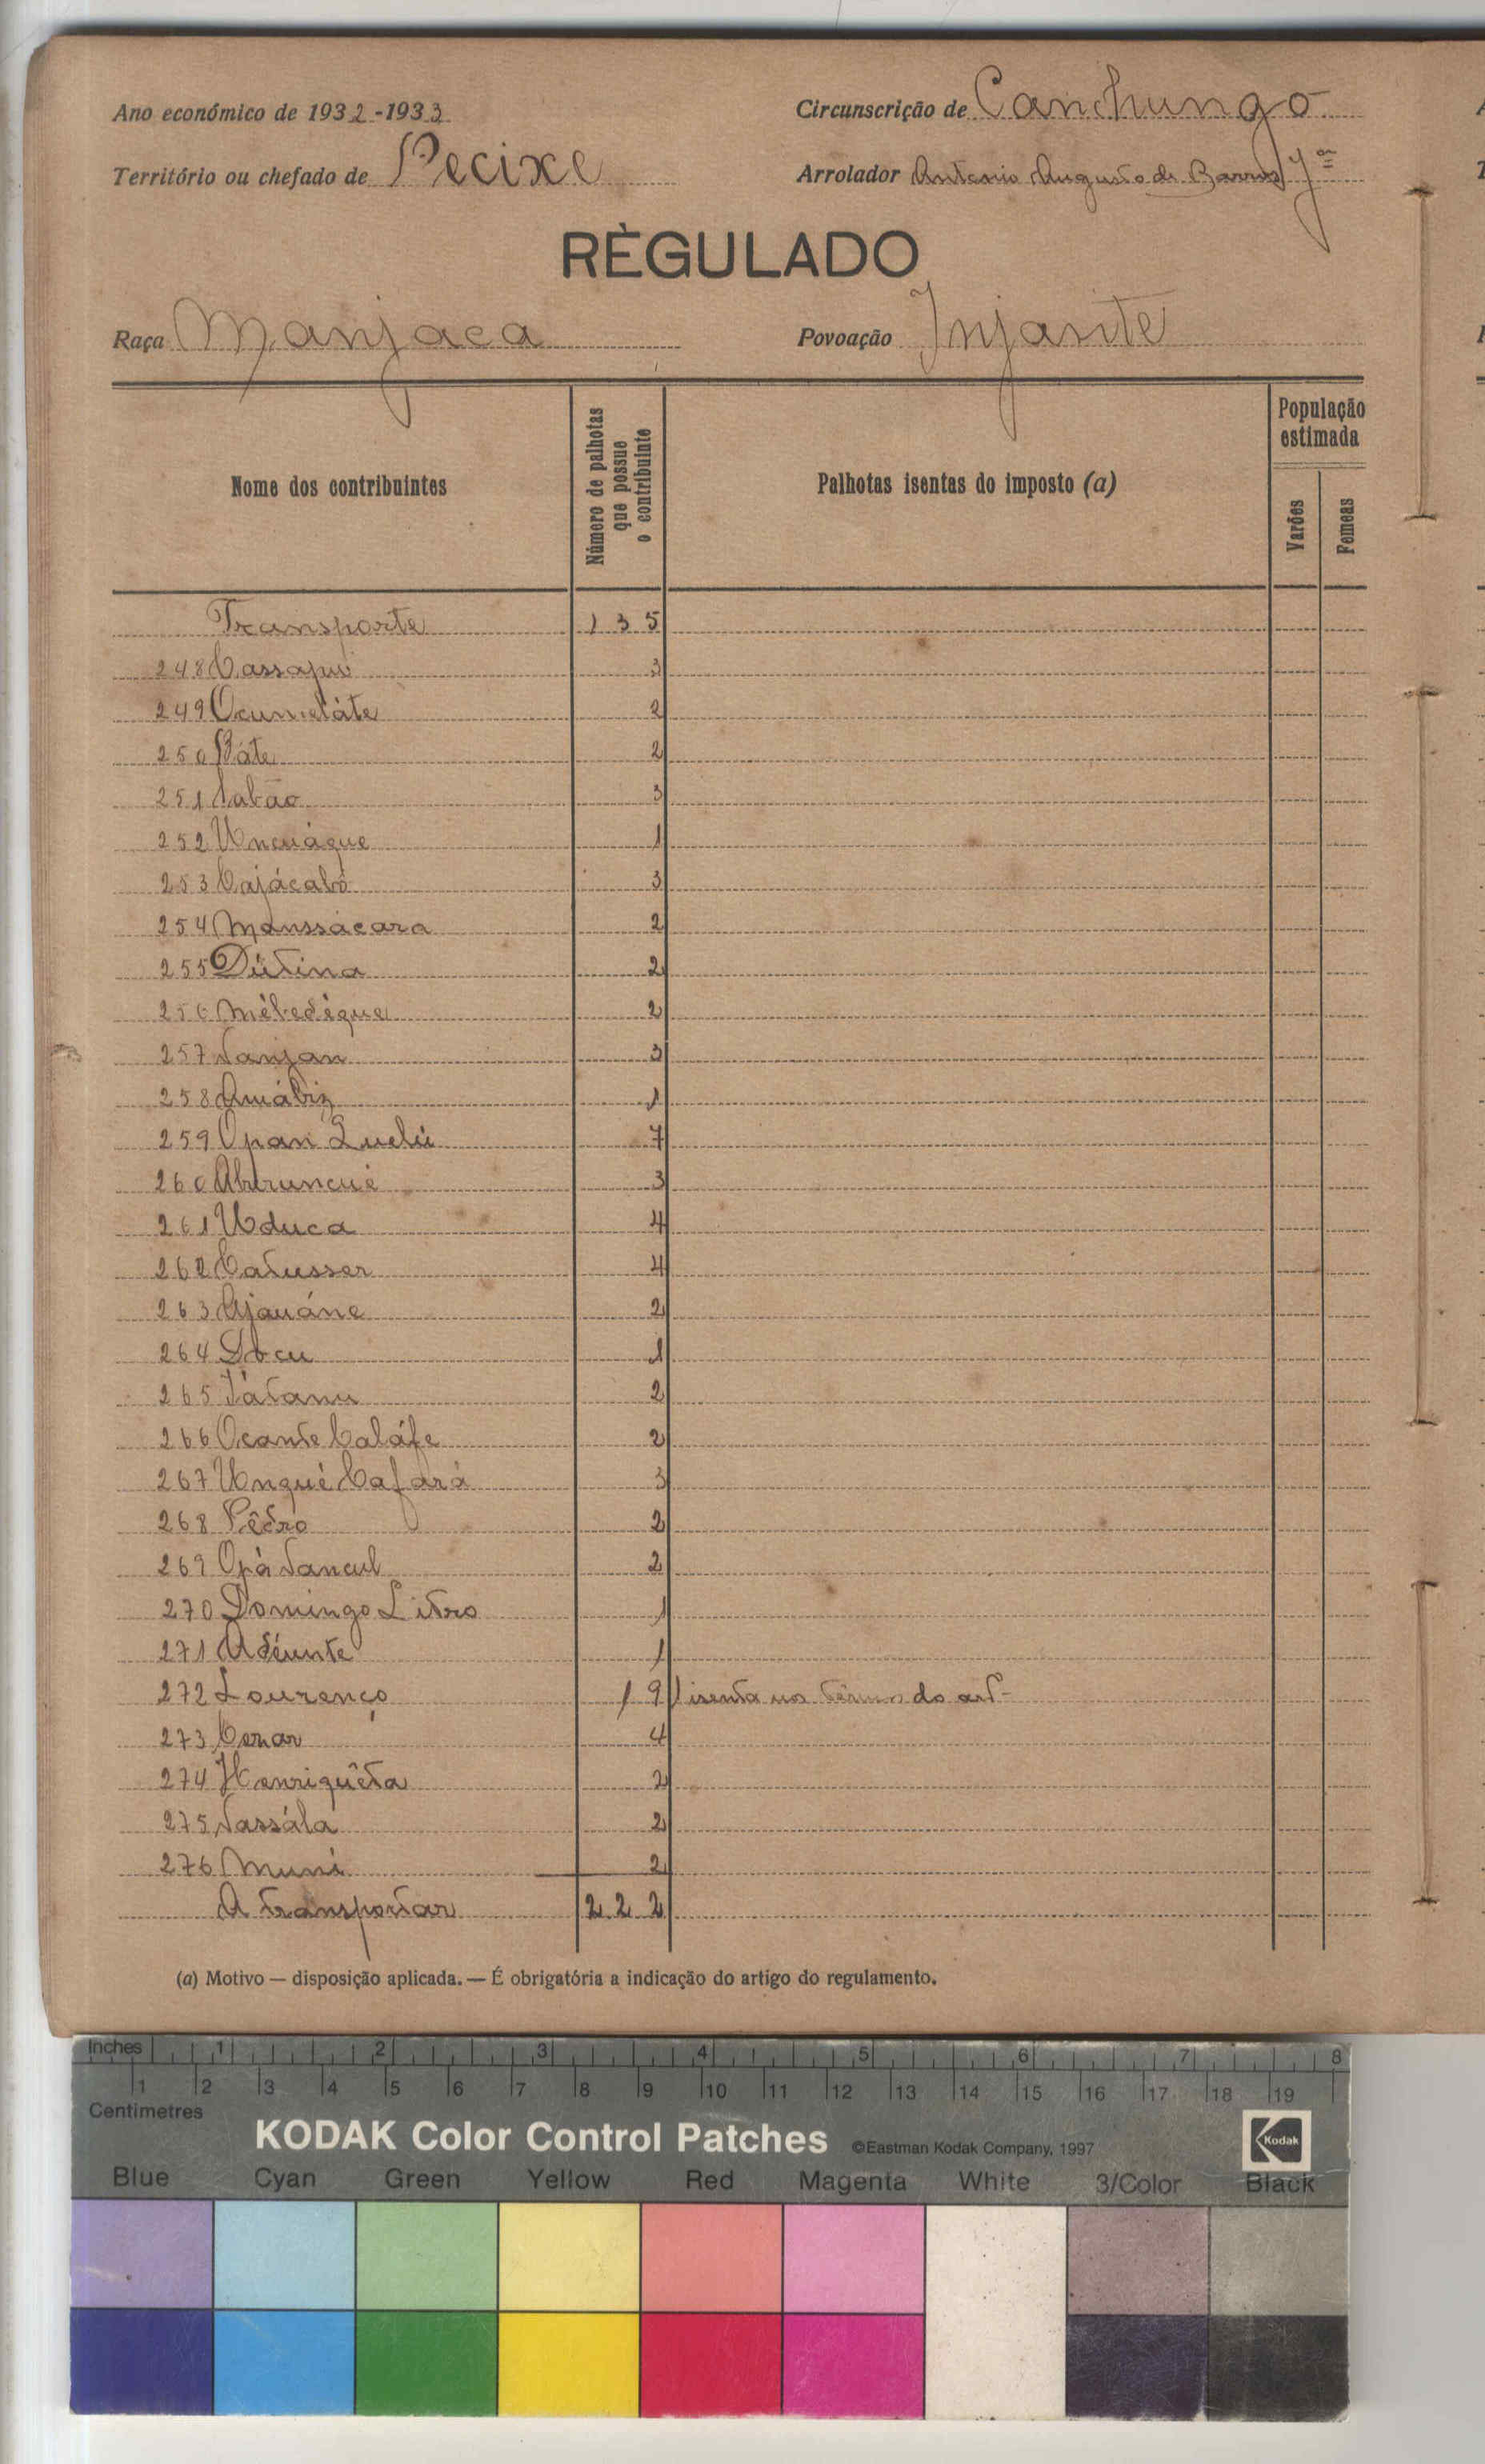 Ano económico de 1932-1933
Circunscrição de Canchungo
Território ou chefado de Pecixe
Arrolador Antonio Augusto de Barros Jor
RÈGULADO
Raça Manjaca
Povoação Injante
Nome dos contribuintes
Número de palhotas que possue o contribuinte
Palhotas isentas do imposto (a)
População estimada
Varões
Femeas
Transporte 135
248 3
249 2
250 Báte 2
251 3
252 Uncuáque 1
253 Cajácabó 3
254 Manssácara 2
255 Dútina 2
256 2
257 Nanjan 3
258 Amábiz 1
259 Opan Quelú 7
260 3
261 Uduca 4
262 Catusser 4
263 Ajauáne 2
264 1
265 Játanu 2
266 Ocante Caláfe 2
267 Unqué Cafará 3
268 Pêdro 2
269 Opá Nancul 2
270 Domingo Litro 1
271 1
272 Lourenço 19 1 isenta nos têrmos do art-
273 4
274 Henriquêta 2
275 Nassála 2
276 Muni 2
A transportar 222
(a) Motivo — disposição aplicada. — É obrigatória a indicação do artigo do regulamento.
Inches 1 2 3 4 5 6 7 8
1 2 3 4 5 6 7 8 9 10 11 12 13 14 15 16 17 18 19
Centimetres
KODAK Color Control Patches ©Eastman Kodak Company, 1997 Kodak
Blue Cyan Green Yellow Red Magenta White 3/Color Black